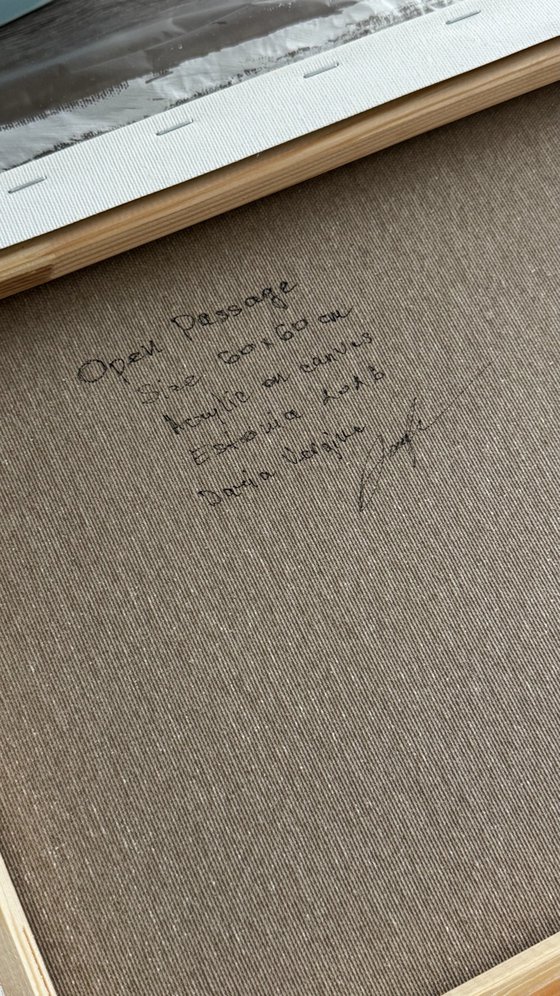 Open Passage
Size 60x60 cm
Acrylic on canvas
Estonia
Darja